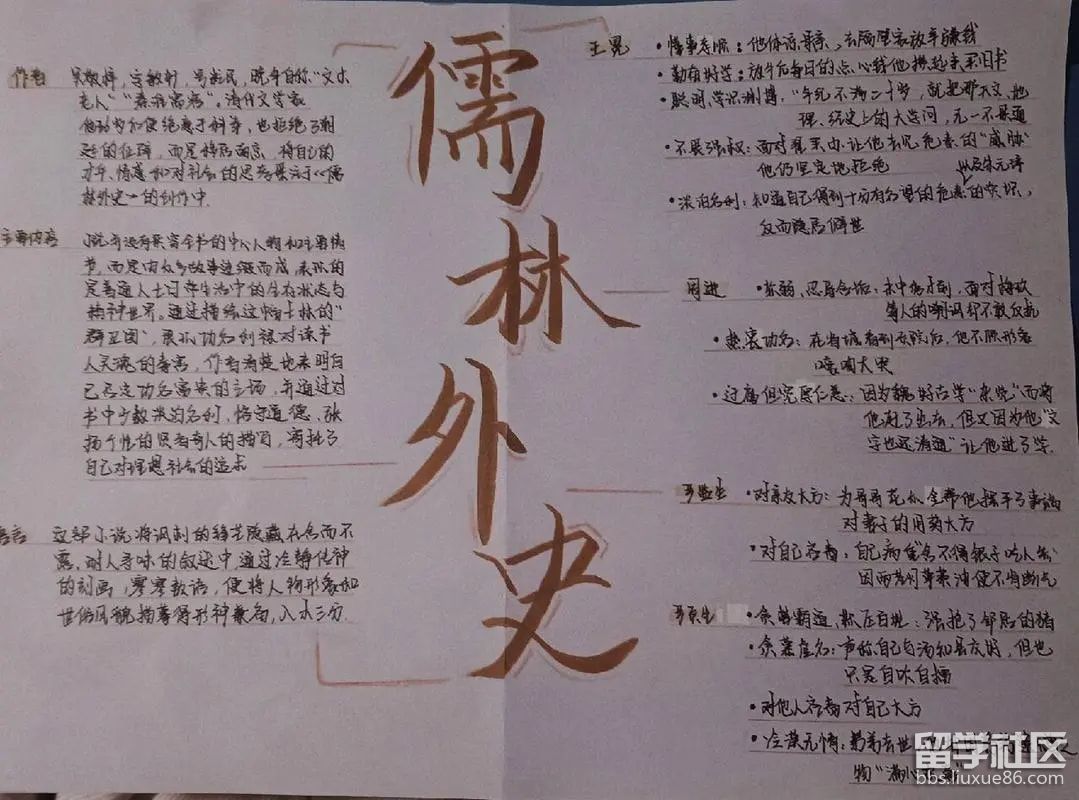 儒林外史
作者 吴敬梓，字敏轩，号粒民，晚年自称"文木
老人""秦淮寓客"。清代文学家
他幼年
廷的征辟，而是移居南京，将自己的
才华、情感和对社会的思考熔于《儒
林外史》的创作中
主要内容 小说并没有贯穿全书的中心人物和主要情
节，而是由众多故事连缀而成，表现的
是普通人士日常生活中的生存状态与
精神世界。通过描绘这幅士林的"
群丑图"，展示功名利禄对读书
人灵魂的毒害，作者清楚地表明自
己否定功名富贵的立场，并通过对
书中少数淡泊名利、恪守道德、张
扬个性的贤者奇人的描写，寄托了
自己对理想社会的追求
语言 这部小说将讽刺的锋芒隐藏在含而不
露、耐人寻味的叙述中，通过冷静传神
的刻画，寥寥数语，便将人物形象和
世俗风貌描摹得形神兼备，入木三分
王冕 ·懂事孝顺：他体谅母亲，去隔壁家放牛赚钱
·勤奋好学：放牛后每日的点心钱他攒起来买旧书
·聪明，学识渊博："年纪不满二十岁，就把那天文、地
理、经史上的大学问，无一不贯通
·不畏强权：面对翟买办让他去见危素的"威胁"
他仍坚定地拒绝
以及朱元璋
·淡泊名利：知道自己得到十方有名望的危素的赏识，
反而隐居避世
周进 ·软弱、忍辱含垢：未中秀才前，面对梅玖
等人的嘲讽却不敢反抗
·热衷功名：在省城看到贡院后，他不顾形象
嚎啕大哭
·迂腐但宽厚仁慈：因为魏好古学"杂览"而将
他赶了出去，但又因为他"文
字也还清通"让他进了学.
严监生 ·对亲友大方：为哥哥花 金帮他摆平了事端
对妻子的用药大方
·对自己吝啬：自己病重舍不得银子吃人参
因两茎灯草费油便不肯断气
严贡生 ·贪婪霸道，欺压百姓：强抢了邻居的猪
·贪慕虚名：声称自己与汤知县友好，但也
只是自吹自擂
·对他人吝啬对自己大方
·冷漠无情：弟弟去世
物"满心
留学社区
bbs.liuxue86.com